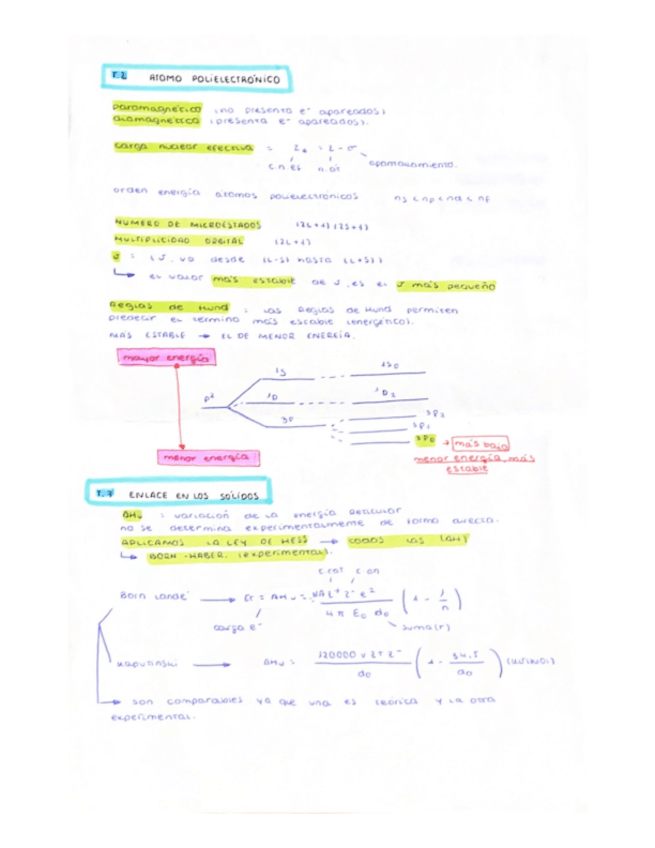 T.2 ATOMO POLIELECTRÓNICO
paramagnético (no presenta e⁻ apareados)
diamagnético (presenta e⁻ apareados).
carga nuclear efectiva = Z* = Z - σ
apantallamiento.
c.n.ef n.at
orden energía átomos polielectrónicos ns < np < nd < nf
NUMERO DE MICROESTADOS (2L+1)(2S+1)
MULTIPLICIDAD ORBITAL (2L+1)
J = (J, va desde (L-S) hasta (L+S))
↳ el valor más estable de J, es el J más pequeño
Reglas de Hund : Las Reglas de Hund permiten
predecir el termino más estable (energético).
MÁS ESTABLE → EL DE MENOR ENERGÍA.
mayor energía
1S 1S0
p² 1D 1D2
3P 3P2
3P1
3P0 → más baja
menor energía menor energía, más
estable
T.7 ENLACE EN LOS SÓLIDOS
ΔHu : variación de la energía Reticular
no se determina experimentalmente de forma directa.
APLICAMOS LA LEY DE HESS → todas las (ΔH)
↳ BORN-HABER. (experimental).
c.cat c.an
Born Landé → = ΔHu = NA Z⁺ Z⁻ e² / 4 π E₀ d₀ (1 - 1/n)
carga e⁻ suma(r)
Kapustinski → ΔHu = 120000 v Z⁺ Z⁻ / d₀ (1 - 34,5 / d₀) (KJ/mol)
→ son comparables ya que una es teórica y la otra
experimental.